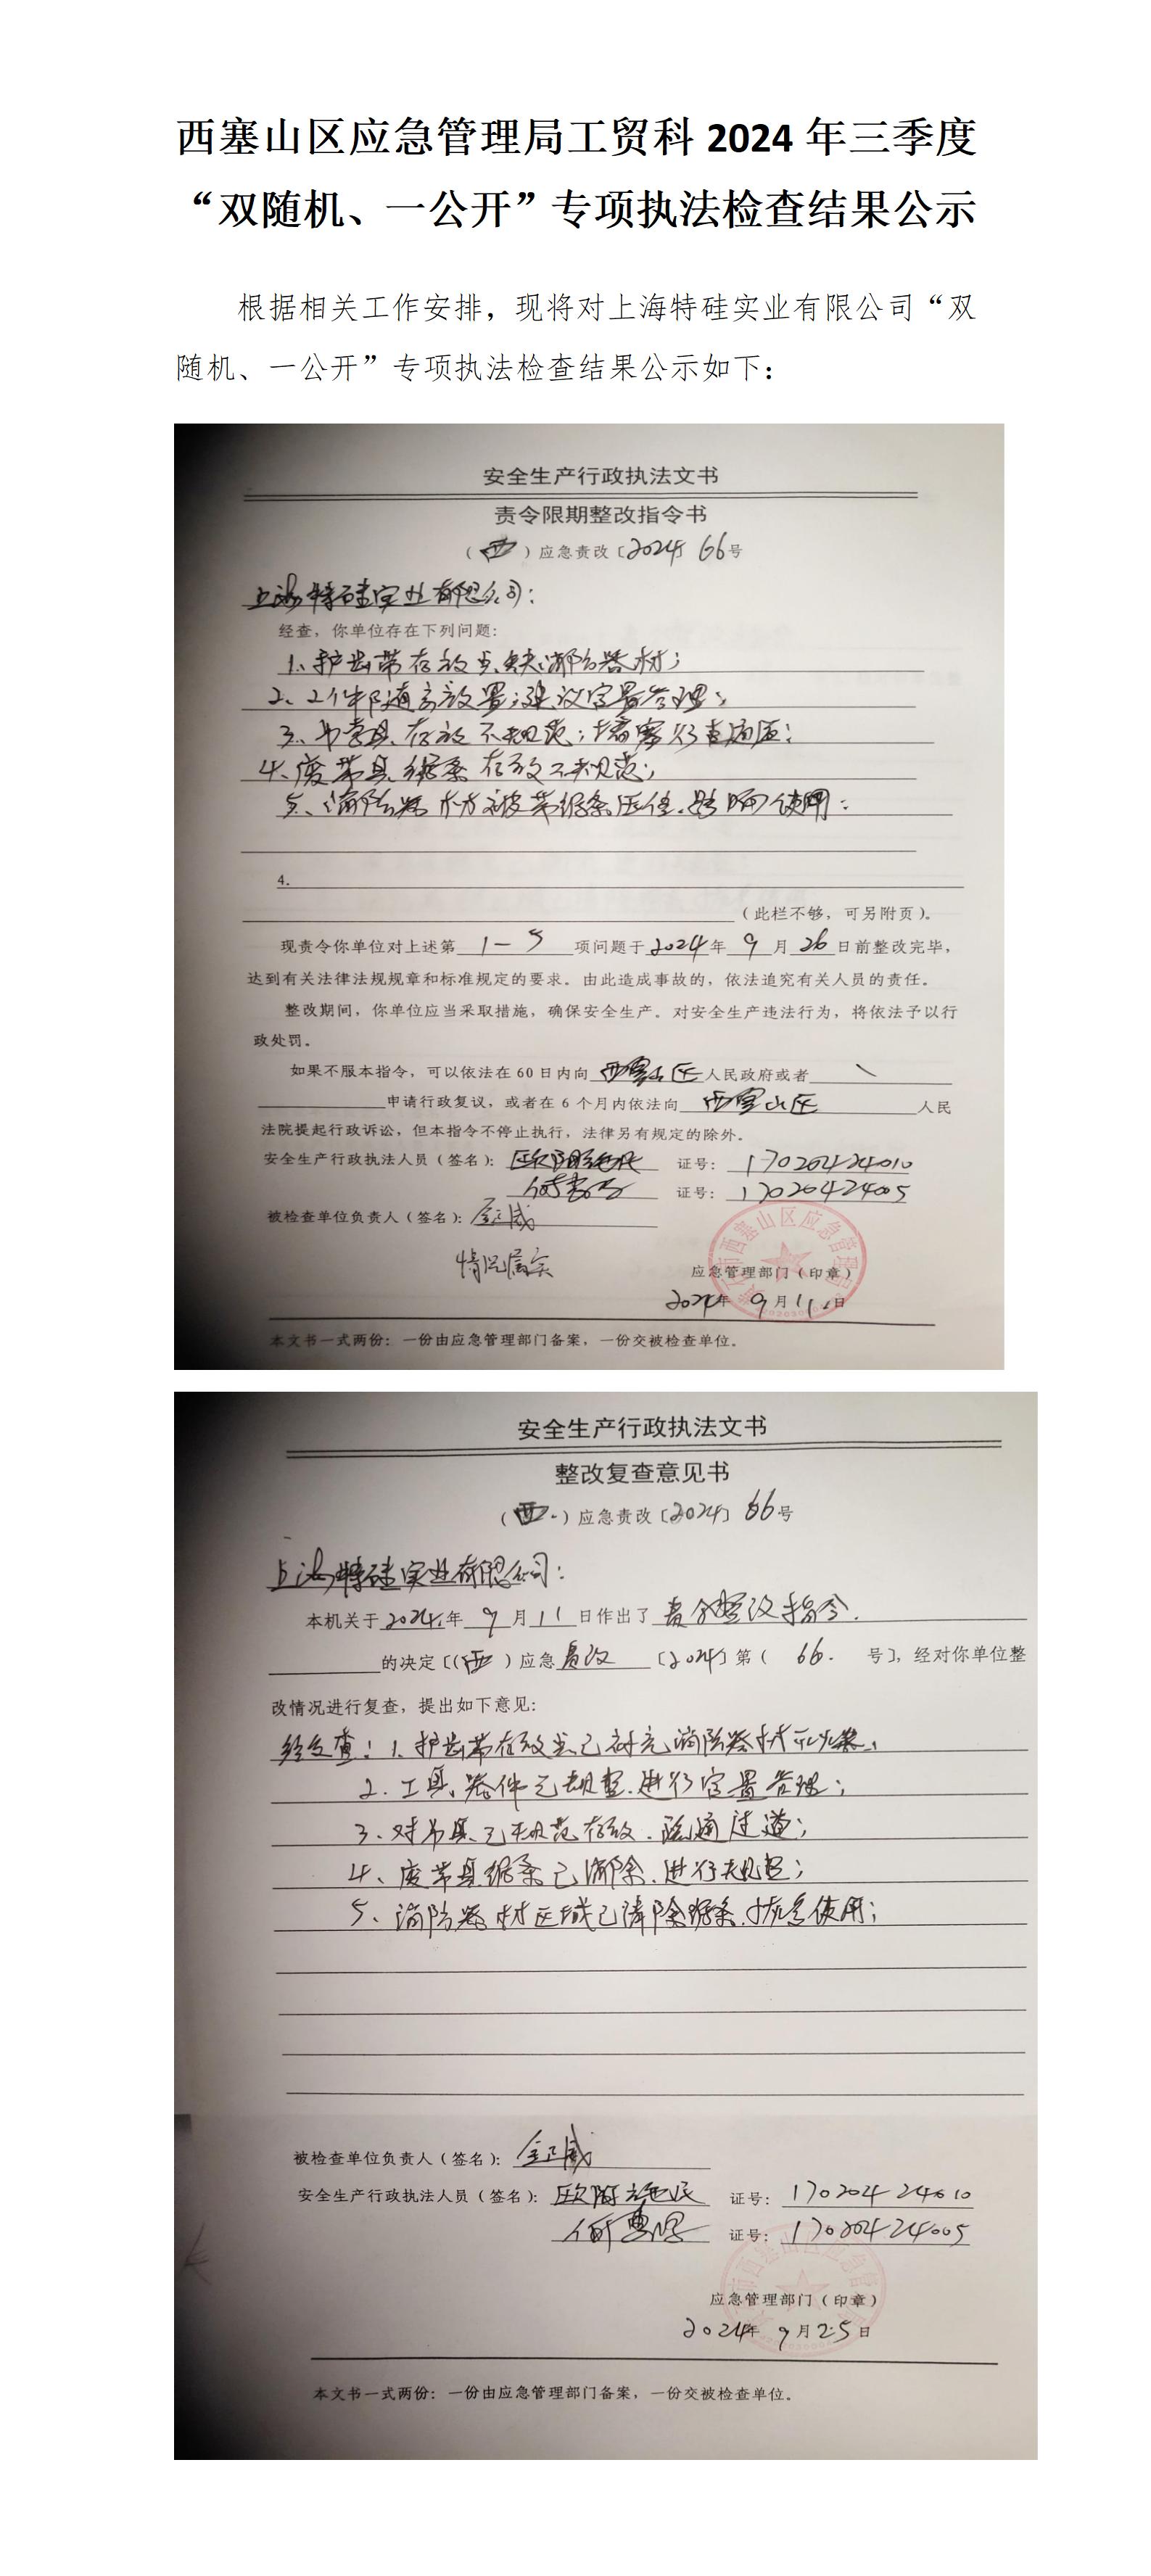 西塞山区应急管理局工贸科 2024 年三季度
“双随机、一公开”专项执法检查结果公示
根据相关工作安排，现将对上海特硅实业有限公司“双
随机、一公开”专项执法检查结果公示如下：
安全生产行政执法文书
责令限期整改指令书
（西）应急责改〔2024〕66号
上海特硅实业有限公司：
经查，你单位存在下列问题：
1、护齿带存放点缺消防器材；
2、放置；建议定置管理；
3、吊索具存放不规范；堵塞通道；
4、废带锯条存放不规范；
5、消防器材被带锯条压住，影响使用；
4.
（此栏不够，可另附页）。
现责令你单位对上述第 1-5 项问题于2024年 9 月 26 日前整改完毕，
达到有关法律法规规章和标准规定的要求。由此造成事故的，依法追究有关人员的责任。
整改期间，你单位应当采取措施，确保安全生产。对安全生产违法行为，将依法予以行
政处罚。
如果不服本指令，可以依法在 60 日内向 西塞山区 人民政府或者 \
申请行政复议，或者在 6 个月内依法向 西塞山区 人民
法院提起行政诉讼，但本指令不停止执行，法律另有规定的除外。
安全生产行政执法人员（签名）：欧阳 证号：17020424010
何 证号：17020424005
被检查单位负责人（签名）：威
情况属实
应急管理部门（印章）
2024年 9月11日
本文书一式两份：一份由应急管理部门备案，一份交被检查单位。
安全生产行政执法文书
整改复查意见书
（西）应急责改〔2024〕66号
上海特硅实业有限公司：
本机关于2024年 9 月 11 日作出了 责令整改指令
的决定〔（西）应急责改〔2024〕第（ 66 号〕，经对你单位整
改情况进行复查，提出如下意见：
经复查：1、护齿带存放点已补充消防器材
2、工具、器件已规整，进行定置管理；
3、对吊具已规范存放，疏通过道；
4、废带具锯条已清除，进行规整；
5、消防器材区域已清除锯条，恢复使用；
被检查单位负责人（签名）：威
安全生产行政执法人员（签名）：欧阳 证号：17020424010
何 证号：17020424005
应急管理部门（印章）
2024年 9月25日
本文书一式两份：一份由应急管理部门备案，一份交被检查单位。